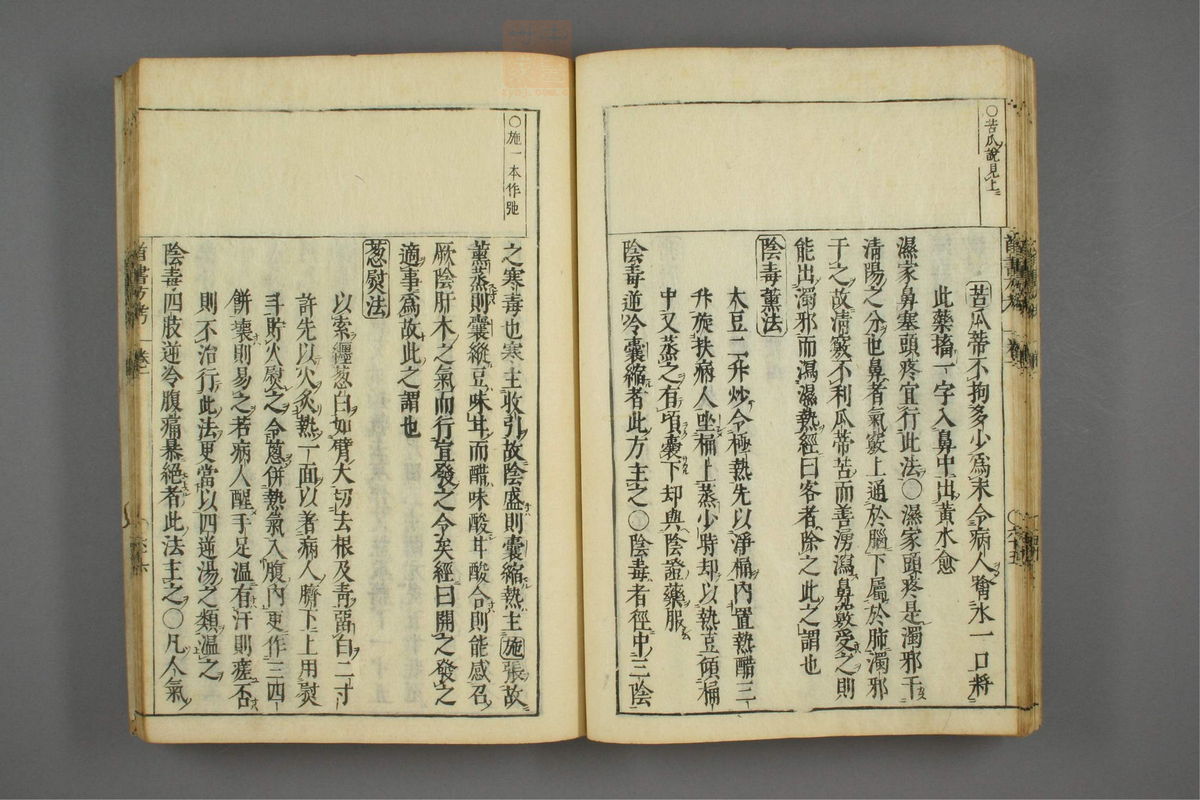 ○苦瓜說見上
苦瓜蒂不拘多少為末令病人噙水一口將
此藥搐一字入鼻中出黃水愈
濕家鼻塞頭疼宜行此法○濕家頭疼是濁邪干
清陽之分也鼻者氣竅上通於腦下屬於肺濁邪
干之故清竅不利瓜蒂苦而善湧瀉鼻竅受之則
能出濁邪而瀉濕熱經曰客者除之此之謂也
陰毒薰法
大豆二升炒令極熱先以淨桶內置熱醋三
升旋扶病人坐桶上蒸少時却以熱豆傾桶
中又蒸之有頃囊下却與陰證藥服
陰毒逆冷囊縮者此方主之○陰毒者徑中三陰
○施一本作弛
之寒毒也寒主收引故陰盛則囊縮熱主施張故
薰蒸則囊縱豆味甘而醋味酸甘酸合則能感召
厥陰肝木之氣而行宣發之令矣經曰開之發之
適事為故此之謂也
葱熨法
以索纏葱白如臂大切去根及青留白二寸
許先以火炙熱一面以著病人臍下上用熨
斗貯火熨之令葱併熱氣入腹內更作三四
餅壞則易之若病人醒手足溫有汗則瘥否
則不治行此法更當以四逆湯之類溫之
陰毒四肢逆冷腹痛暴絕者此法主之○凡人氣
首書方考 卷一 六十六